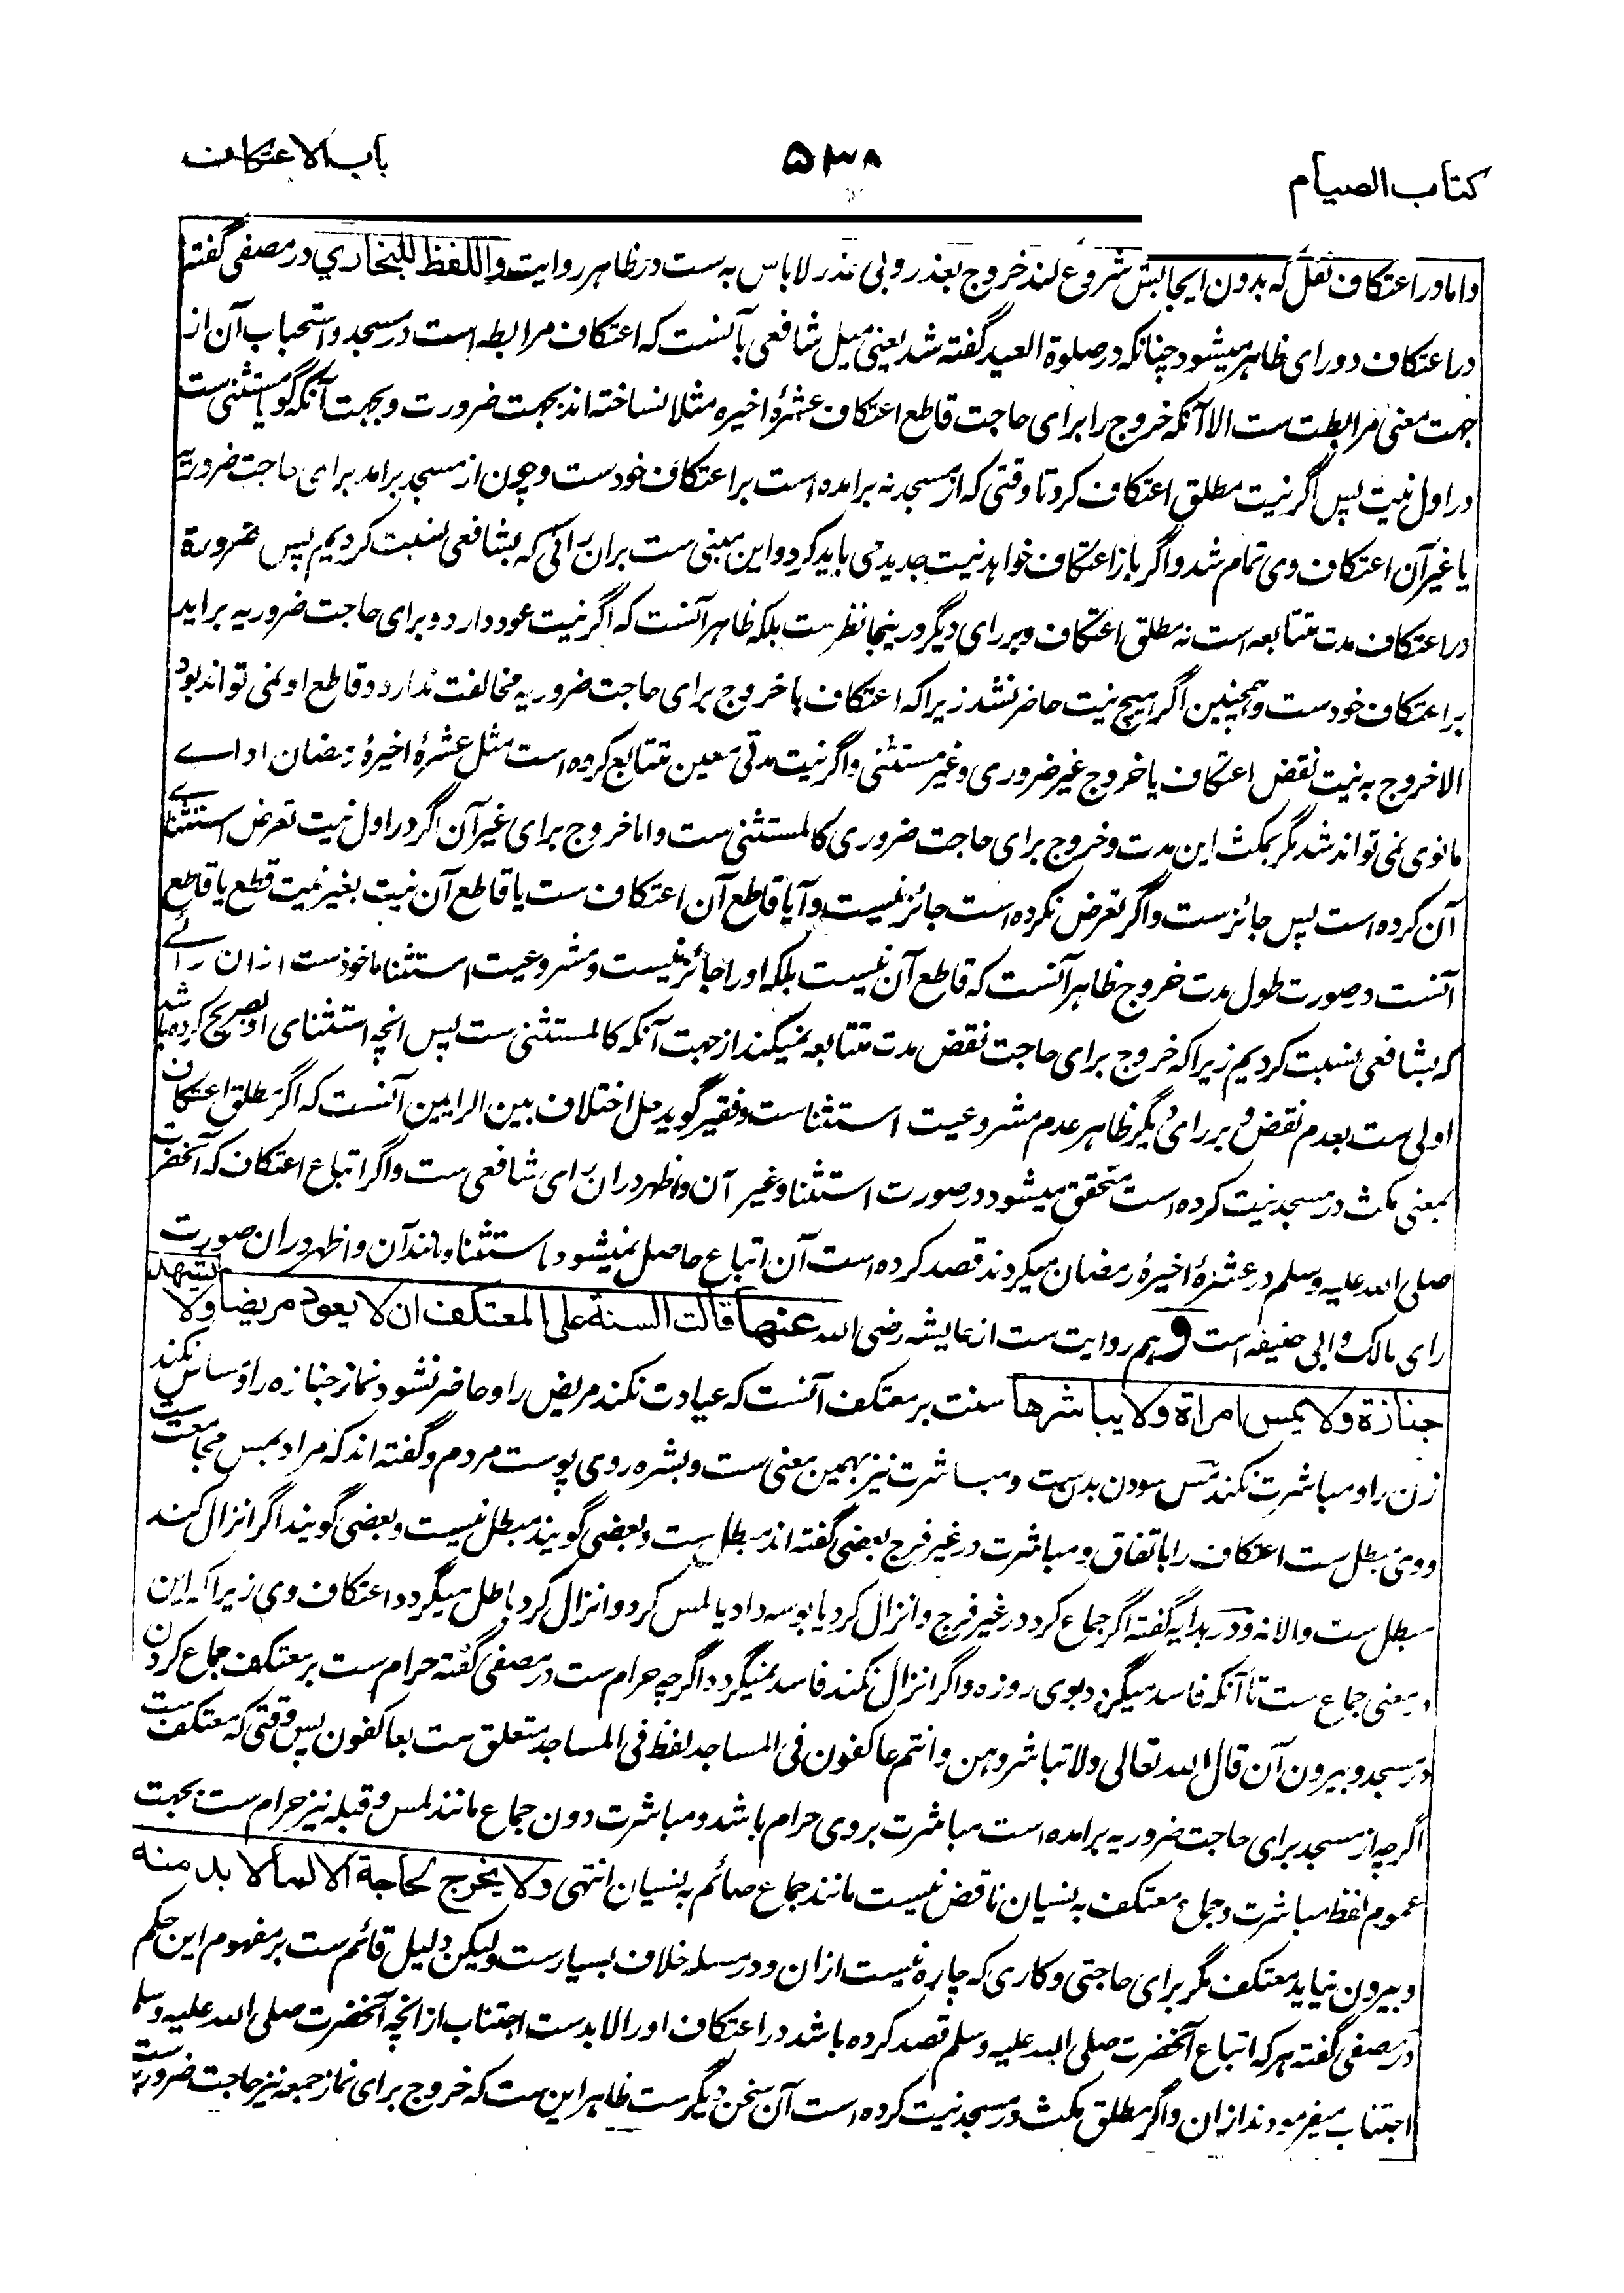 کتاب الصیام
۵۳۸
باب الاعتکاف
و اما در اعتکاف نفل که بدون ایجابش شروع کند خروج بعذر و بی عذر لا باس به ست در ظاهر روایت واللفظ للبخاري در مصفی گفته
در اعتکاف دو رای ظاهر میشود چنانکه در صلوة العید گفته شد یعنی میل شافعی بآنست که اعتکاف مرابطه است در مسجد و استحباب آن از
جهت معنی مرابطت ست الا آنکه خروج را برای حاجت قاطع اعتکاف عشرهٔ اخیره مثلا نساخته اند بجهت ضرورت و بجهت آنکه گویا مستثنی ست
در اول نیت پس اگر نیت مطلق اعتکاف کرد تا وقتی که از مسجد نه برامده است بر اعتکاف خودست و چون از مسجد برامد برای حاجت ضروریه
یا غیر آن اعتکاف وی تمام شد و اگر باز اعتکاف خواهد نیت جدید می باید کرد و این مبنی ست بران رائی که بشافعی نسبت کردیم پس ضرورة
در اعتکاف مدت متتابعه است نه مطلق اعتکاف و بر رای دیگر درینجا نظرست بلکه ظاهر آنست که اگر نیت عود دارد و برای حاجت ضروریه براید
بر اعتکاف خودست و همچنین اگر هیچ نیت حاضر نشد زیرا که اعتکاف با خروج برای حاجت ضروریه مخالفت ندارد و قاطع او نمی تواند بود
الا خروج به نیت نقض اعتکاف یا خروج غیر ضروری و غیر مستثنی و اگر نیت مدتی معین متتابع کرده است مثل عشرهٔ اخیرهٔ رمضان ادای
ما نوی نمی تواند شد مگر بمکث این مدت و خروج برای حاجت ضروری کالمستثنی ست و اما خروج برای غیر آن اگر در اول نیت تعرض استثنای
آن کرده است پس جائزست و اگر تعرض نکرده است جائز نیست و آیا قاطع آن اعتکاف ست یا قاطع آن نیت بغیر نیت قطع یا قاطع
آنست در صورت طول مدت خروج ظاهر آنست که قاطع آن نیست بلکه او را جائز نیست و مشروعیت استثنا ماخوذست ازان رائے
که بشافعی نسبت کردیم زیرا که خروج برای حاجت نقض مدت متتابعه نمیکند از جهت آنکه کالمستثنی ست پس انچه استثنای او بصریح کرده باشد
اولی ست بعدم نقض و بر رای دیگر ظاهر عدم مشروعیت استثناست و فقیر گوید حل اختلاف بین الرایین آنست که اگر مطلق اعتکاف
بمعنی مکث در مسجد نیت کرده است متحقق میشود در صورت استثنا و غیر آن و اظهر دران رای شافعی ست و اگر اتباع اعتکاف که آنحضرت
صلی الله علیه وسلم در عشرهٔ اخیرهٔ رمضان میکردند قصد کرده است آن اتباع حاصل نمیشود با استثنا و مانند آن و اظهر دران صورت
رای مالک و ابی حنیفه است و هم روایت ست از عایشه رضی الله عنها قالت السنة علی المعتکف ان لا یعود مریضا ولا یشهد
جنازة ولا یمس امراة ولا یباشرها سنت بر معتکف آنست که عیادت نکند مریض را و حاضر نشود نماز جنازه را و مساس نکند
زن را و مباشرت نکند مس سودن بدست و مباشرت نیز بهمین معنی ست و بشره روی پوست مردم و گفته اند که مراد بمس مجامعت ست
و وی مبطل ست اعتکاف را باتفاق و مباشرت در غیر فرج بعضی گفته اند مبطل ست و بعضی گویند مبطل نیست و بعضی گویند اگر انزال کند
مبطل ست و الا نه و در هدایه گفته اگر جماع کرد در غیر فرج و انزال کرد یا بوسه داد یا لمس کرد و انزال کرد باطل میگردد اعتکاف وی زیرا که این
در معنی جماع ست تا آنکه فاسد میگردد بوی روزه و اگر انزال نکند فاسد نمیگردد اگرچه حرام ست در مصفی گفته حرام ست بر معتکف جماع کردن
در مسجد و بیرون آن قال الله تعالی ولا تباشروهن وانتم عاکفون فی المساجد لفظ فی المساجد متعلق ست بعاکفون پس وقتی که معتکف ست
اگرچه از مسجد برای حاجت ضروریه برامده است مباشرت بروی حرام باشد و مباشرت دون جماع مانند لمس و قبله نیز حرام ست بجهت
عموم لفظ مباشرت و جماع معتکف به نسیان ناقض نیست مانند جماع صائم به نسیان انتهی ولا یخرج لحاجة الا لما لا بد منه
و بیرون نیاید معتکف مگر برای حاجتی و کاری که چاره نیست ازان و در مسله خلاف بسیارست ولیکن دلیل قائم ست بر مفهوم این حکم
در مصفی گفته هر که اتباع آنحضرت صلی الله علیه وسلم قصد کرده باشد در اعتکاف او را لابدست اجتناب از انچه آنحضرت صلی الله علیه وسلم
اجتناب میفرمودند ازان و اگر مطلق مکث در مسجد نیت کرده است آن سخن دیگرست ظاهر این ست که خروج برای نماز جمعه نیز حاجت ضروریه ست